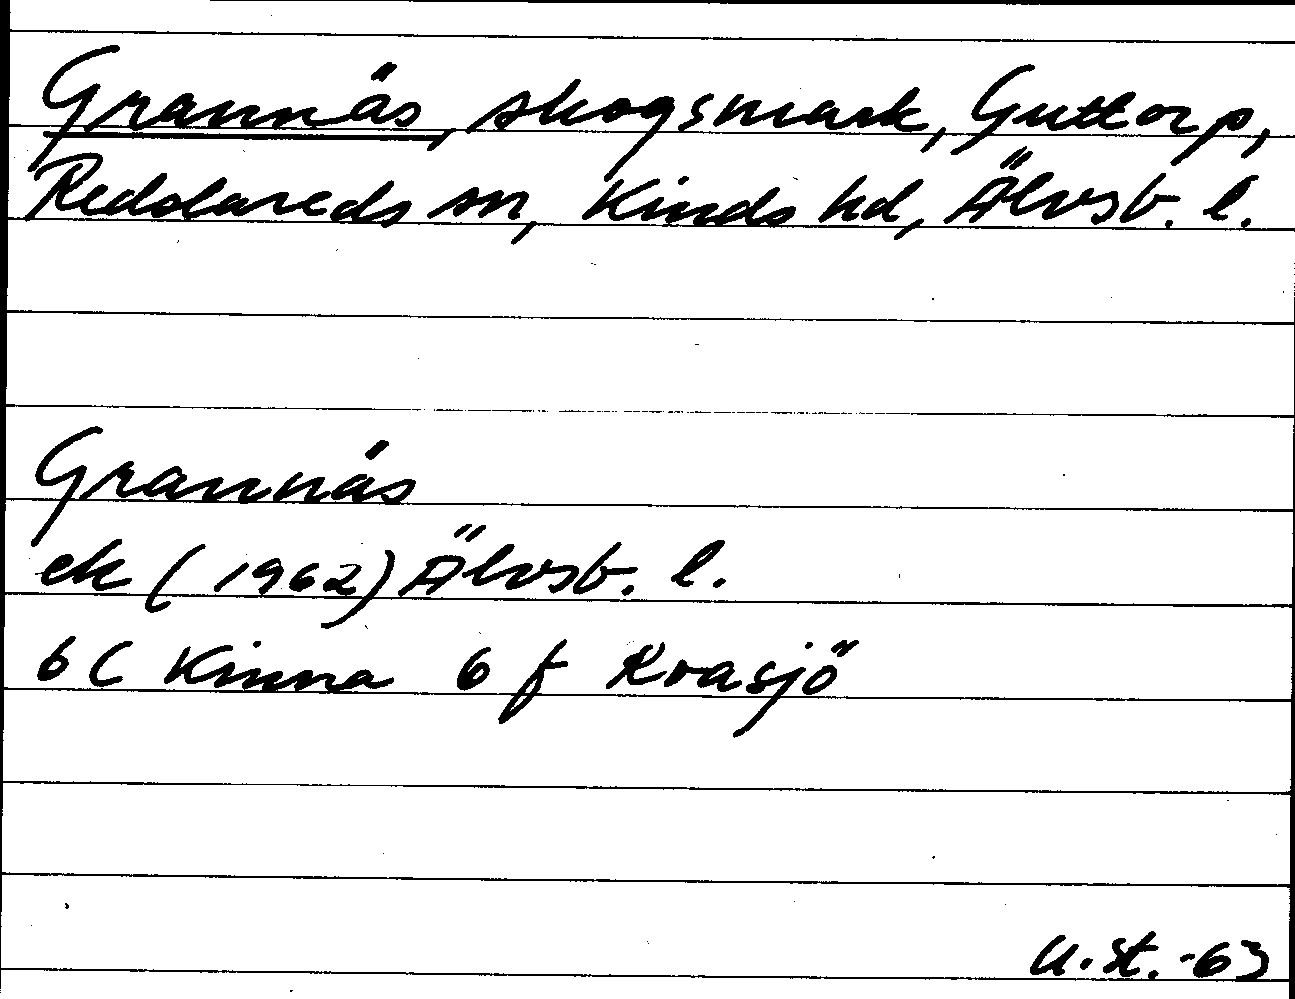 Grannäs, skogsmark, Guttorp,
Redslareds sn, Kinds hd, Älvsb. l.
Grannäs
ek (1962) Älvsb. l.
6 C Kinna 6 f Roasjö
U. St. -63